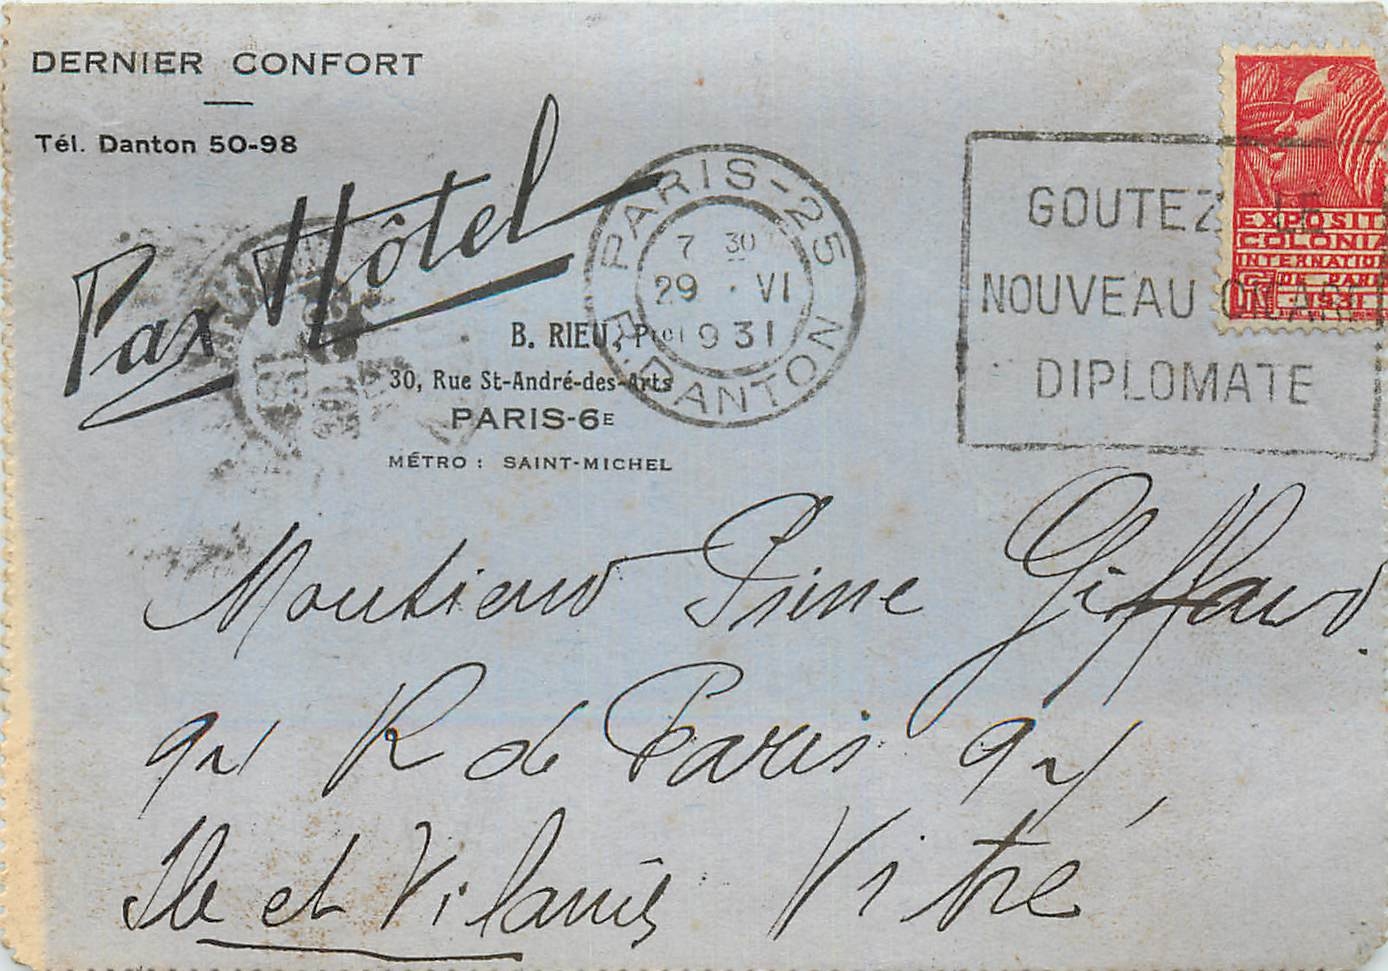 DERNIER CONFORT
Tél. Danton 50-98
Pax Hôtel
B. RIEU, Pret
30, Rue St-André-des-Arts
PARIS-6E
MÉTRO : SAINT-MICHEL
PARIS-25
7 30
29 · VI
1931
R. DANTON
GOUTEZ LE
NOUVEAU
DIPLOMATE
EXPOSITI
COLONIA
INTERNATION
DE PARI
1931
Monsieur Pierre Giffard
94 R de Paris 94,
Ile et Vilaine Vitré